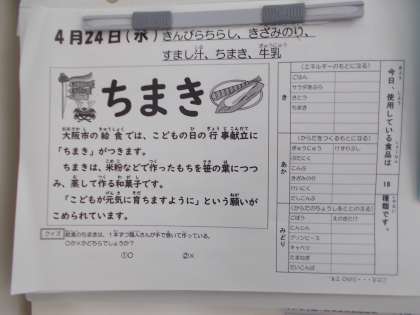 4月24日(水) きんぴらちらし、きざみのり、
すまし汁、ちまき、牛乳
ちまき
大阪市の給食では、こどもの日の行事献立に
「ちまき」がつきます。
ちまきは、米粉などで作ったもちを笹の葉につつ
み、蒸して作る和菓子です。
「こどもが元気に育ちますように」という願いが
こめられています。
クイズ 給食のちまきは、1本ずつ職人さんが手で巻いて作っている。
○か×かどちらでしょうか?
①○ ②×
今日、使用している食品は
18
種類です。
き
(エネルギーのもとになる)
ごはん
サラダあぶら
さとう
ちまき
あか
(からだをつくるもとになる)
ぎゅうにゅう
ぶたにく
きざみのり
けいにく
みどり
(からだのちょうしをととのえる)
ごぼう えのきたけ
にんじん
グリンピース
キャベツ
たまねぎ
だいこんば